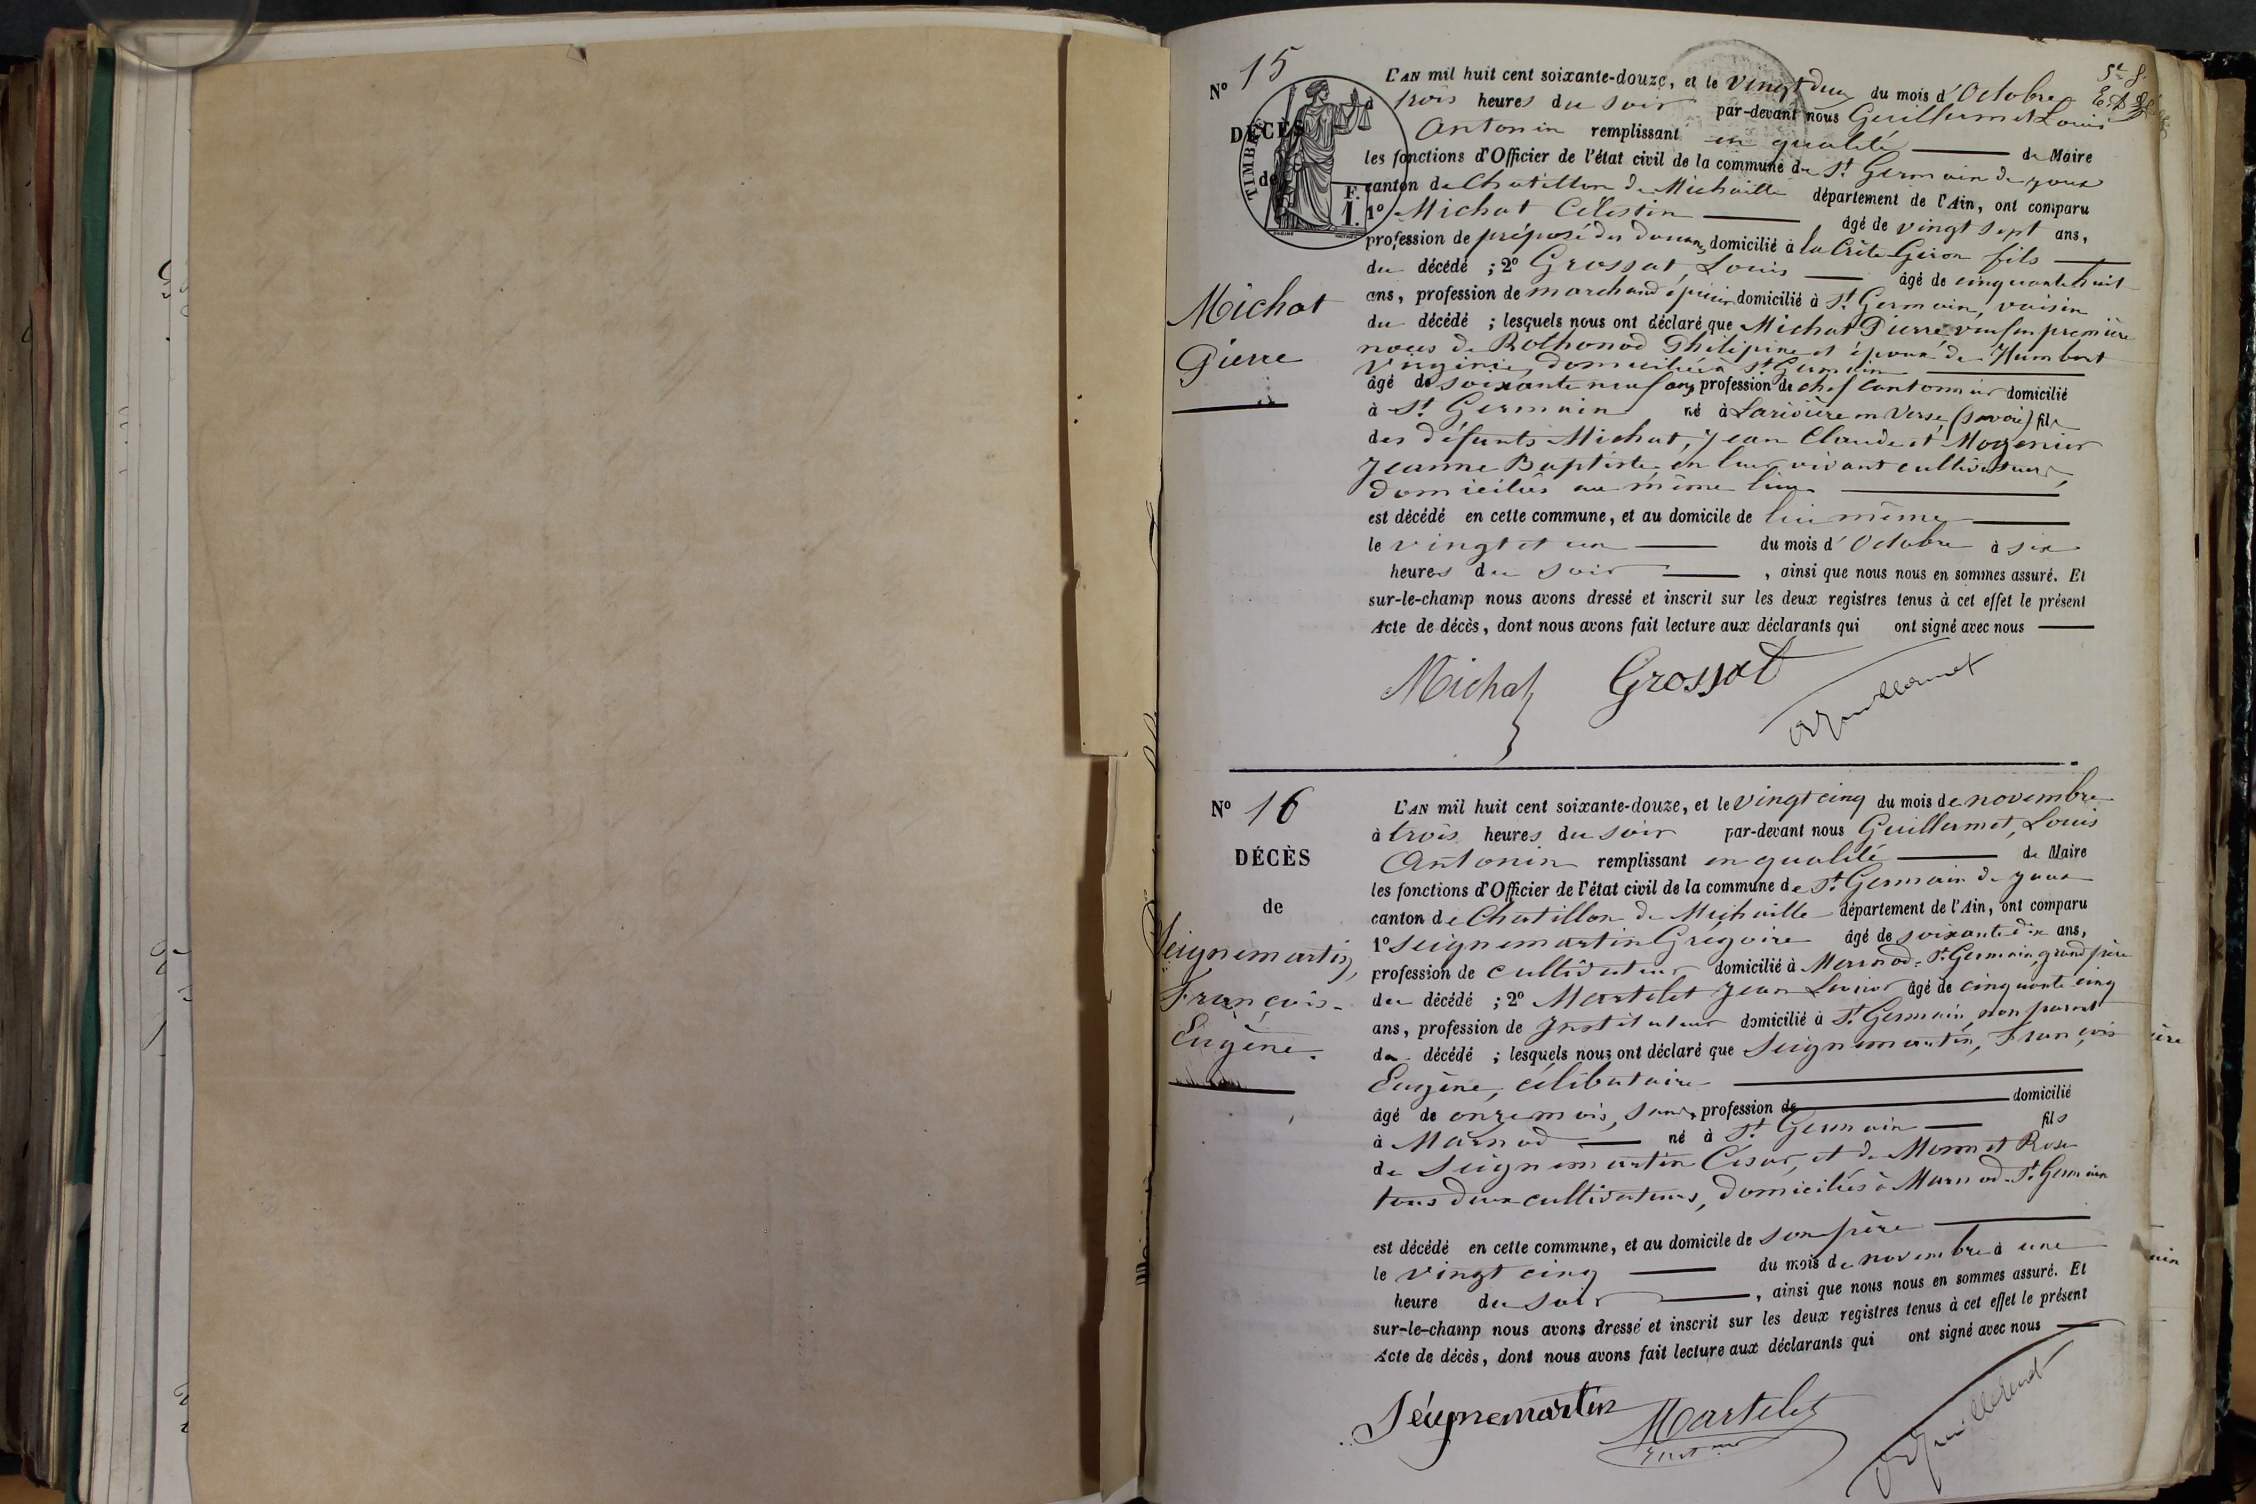 N° 15
DÉCÈS
de
TIMBRE
F.
1.
Michat
Pierre
L'AN mil huit cent soixante-douze, et le vingt deux du mois d'Octobre
à trois heures du soir par-devant nous Guillermet Louis
Antonin remplissant en qualité de Maire
les fonctions d'Officier de l'état civil de la commune de St Germain de joux
canton de Chatillon de Michaille département de l'Ain, ont comparu
1° Michat Célestin âgé de vingt sept ans,
profession de préposé des douanes domicilié à la Crête Giron fils
du décédé ; 2° Grossat, Louis âgé de cinquante huit
ans, profession de marchand épicier domicilié à St Germain, voisin
du décédé ; lesquels nous ont déclaré que Michat Pierre veuf en première
noces de Rolhonod Philipine et époux de Humbert
Virginie, domiciliée à St Germain
âgé de soixante neuf ans profession de chef cantonnier domicilié
à St Germain né à Larivière en Verse (Savoie) fils
des défunts Michat, Jean Claude et Mogenier
Jeanne Baptiste, en leur vivant cultivateurs,
domiciliés au même lieu
est décédé en cette commune, et au domicile de lui même
le vingt et un du mois d'Octobre à six
heures du soir , ainsi que nous nous en sommes assuré. Et
sur-le-champ nous avons dressé et inscrit sur les deux registres tenus à cet effet le présent
Acte de décès, dont nous avons fait lecture aux déclarants qui ont signé avec nous
Michat Grossat Guillermet
N° 16
DÉCÈS
de
Seignemartin,
François-
Eugène.
L'AN mil huit cent soixante-douze, et le vingt cinq du mois de novembre
à trois heures du soir par-devant nous Guillermet, Louis
Antonin remplissant en qualité de Maire
les fonctions d'Officier de l'état civil de la commune de St Germain de joux
canton de Chatillon de Michaille département de l'Ain, ont comparu
1° Seignemartin Grégoire âgé de soixante dix ans,
profession de cultivateur domicilié à Marnod-St Germain, grand père
du décédé ; 2° Martelet Jean Louis âgé de cinquante cinq
ans, profession de Instituteur domicilié à St Germain, non parent
du décédé ; lesquels nous ont déclaré que Seignemartin, François
Eugène, célibataire
âgé de onze mois, sans profession de domicilié
à Marnod né à St Germain fils
de Seignemartin César, et de Mermet Rose
tous deux cultivateurs, domiciliés à Marnod-St Germain
est décédé en cette commune, et au domicile de son père
le vingt cinq du mois de novembre à une
heure du soir , ainsi que nous nous en sommes assuré. Et
sur-le-champ nous avons dressé et inscrit sur les deux registres tenus à cet effet le présent
Acte de décès, dont nous avons fait lecture aux déclarants qui ont signé avec nous
Séignemartin Martelet Guillermet